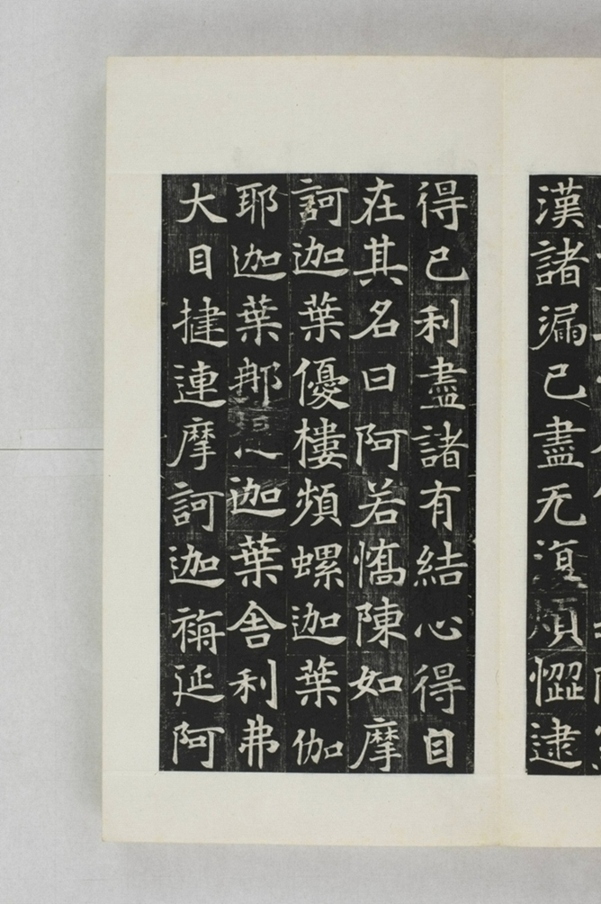 漢諸漏已盡无復煩惱逮
得己利盡諸有結心得自
在其名曰阿若憍陳如摩
訶迦葉優樓頻螺迦葉伽
耶迦葉那提迦葉舍利弗
大目揵連摩訶迦旃延阿